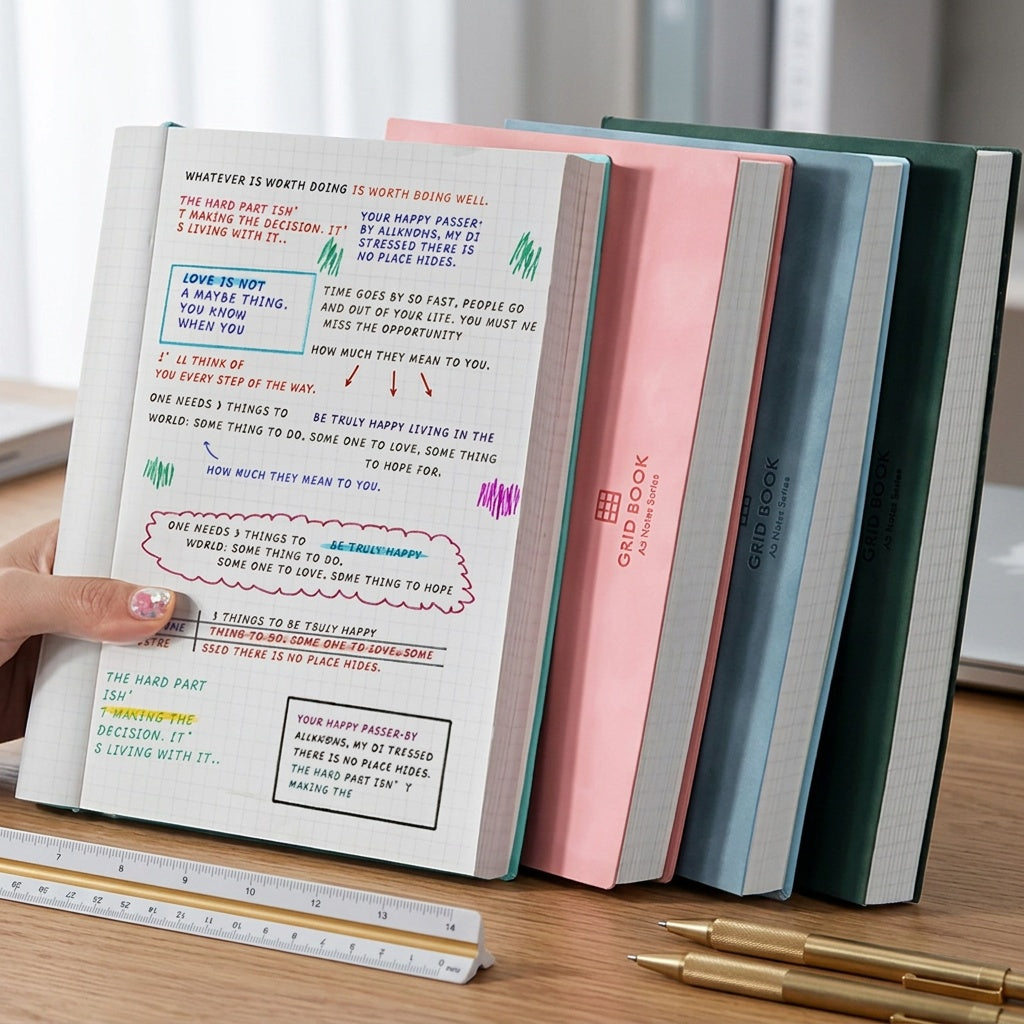 WHATEVER IS WORTH DOING IS WORTH BOING WELL.
THE HARD PART ISH'
T MAKING THE DECISION. IT'
S LIVING WITH IT..
YOUR HAPPY PASSER-
BY ALLKNDNS, MY DI
STRESSED THERE IS
NO PLACE HIDES.
LOVE IS NOT
A MAYBE THING.
YOU KNOW
WHEN YOU
TIME GOES BY SO FAST, PEOPLE GO
AND OUT OF YOUR LITE. YOU MUST NE
MISS THE OPPORTUNITY
HOW MUCH THEY MEAN TO YOU.
!' LL THINK OF
YOU EVERY STEP OF THE WAY.
ONE NEEDS 3 THINGS TO BE TRULY HAPPY LIVING IN THE
WORLD: SOME THING TO DO. SOME ONE TO LOVE, SOME THING
TO HOPE FOR,
HOW MUCH THEY MEAN TO YOU.
ONE NEEDS 3 THINGS TO BE TRULY HAPPY
WORLD: SOME THING TO DO.
SOME ONE TO LOVE, SDME THING TO HOPE
3 THINGS TO BE TBULY HAPPY
THING TO DO. SOME ONE TO LOVE, SOME
SSID THERE IS NO PLACE HIDES.
STRE
THE HARD PART
ISH'
T MAKING THE
DECISION. IT'
S LIVING WITH IT..
YOUR HAPPY PASSER-BY
MY DI TRESSED
THERE IS NO PLACE HIDES.
THE HARD PAST ISN' Y
MAKING THE
GRID BOOK
A5 Notes Series
GRID BOOK
A5 Notes Series
GRID BOOK
A5 Notes Series
7 8 9 10 11 12 13 14